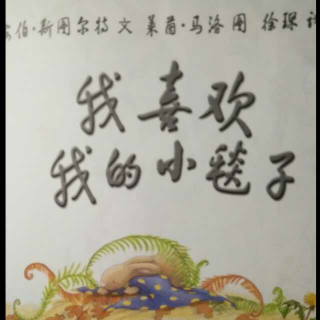 伯·斯图尔特 文 莱茵·马洛 图 徐琛
我喜欢
我的小毯子